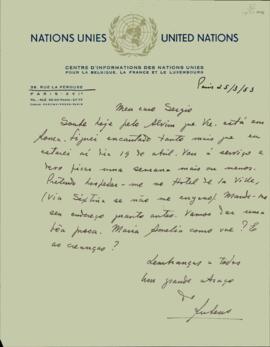 NATIONS UNIES UNITED NATIONS
CENTRE D'INFORMATIONS DES NATIONS UNIES
POUR LA BELGIQUE, LA FRANCE ET LE LUXEMBOURG
36, RUE LA PÉROUSE
PARIS - XVIe
Paris 25/3/53
Meu caro Sergio
Soube hoje pelo Alvim que Vce. está em
Roma. Fiquei encantado tanto mais que eu
estarei aí dia 19 de abril. Vou à serviço e
devo ficar uma semana mais ou menos.
Pretendo hospedar-me no Hotel de la Ville,
(Via Sixtina se não me engano). Mande-me
seu endereço quanto antes. Vamos dar uma
bôa prosa. Maria Amelia como vae? E
as crianças?
Lembranças a todos
Um grande abraço
do
Rubens